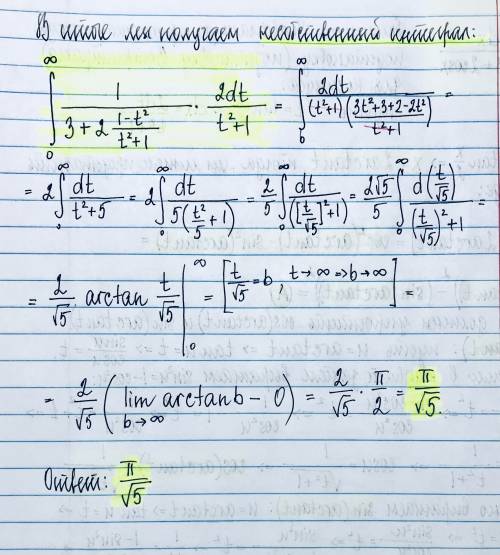 В итоге мы получаем несобственный интеграл:
∫₀^∞ 1/(3+2 (1-t²)/(t²+1)) · 2dt/(t²+1) = ∫₀^∞ 2dt/((t²+1)((3t²+3+2-2t²)/(t²+1))) =
= 2∫₀^∞ dt/(t²+5) = 2∫₀^∞ dt/(5(t²/5+1)) = 2/5 ∫₀^∞ dt/([t/√5]²+1) = 2√5/5 ∫₀^∞ d(t/√5)/((t/√5)²+1) =
= 2/√5 arctan t/√5 |₀^∞ = [t/√5 = b, t→∞ ⇒ b→∞] =
= 2/√5 (lim arctan b - 0) = 2/√5 · π/2 = π/√5.
b→∞
Ответ: π/√5